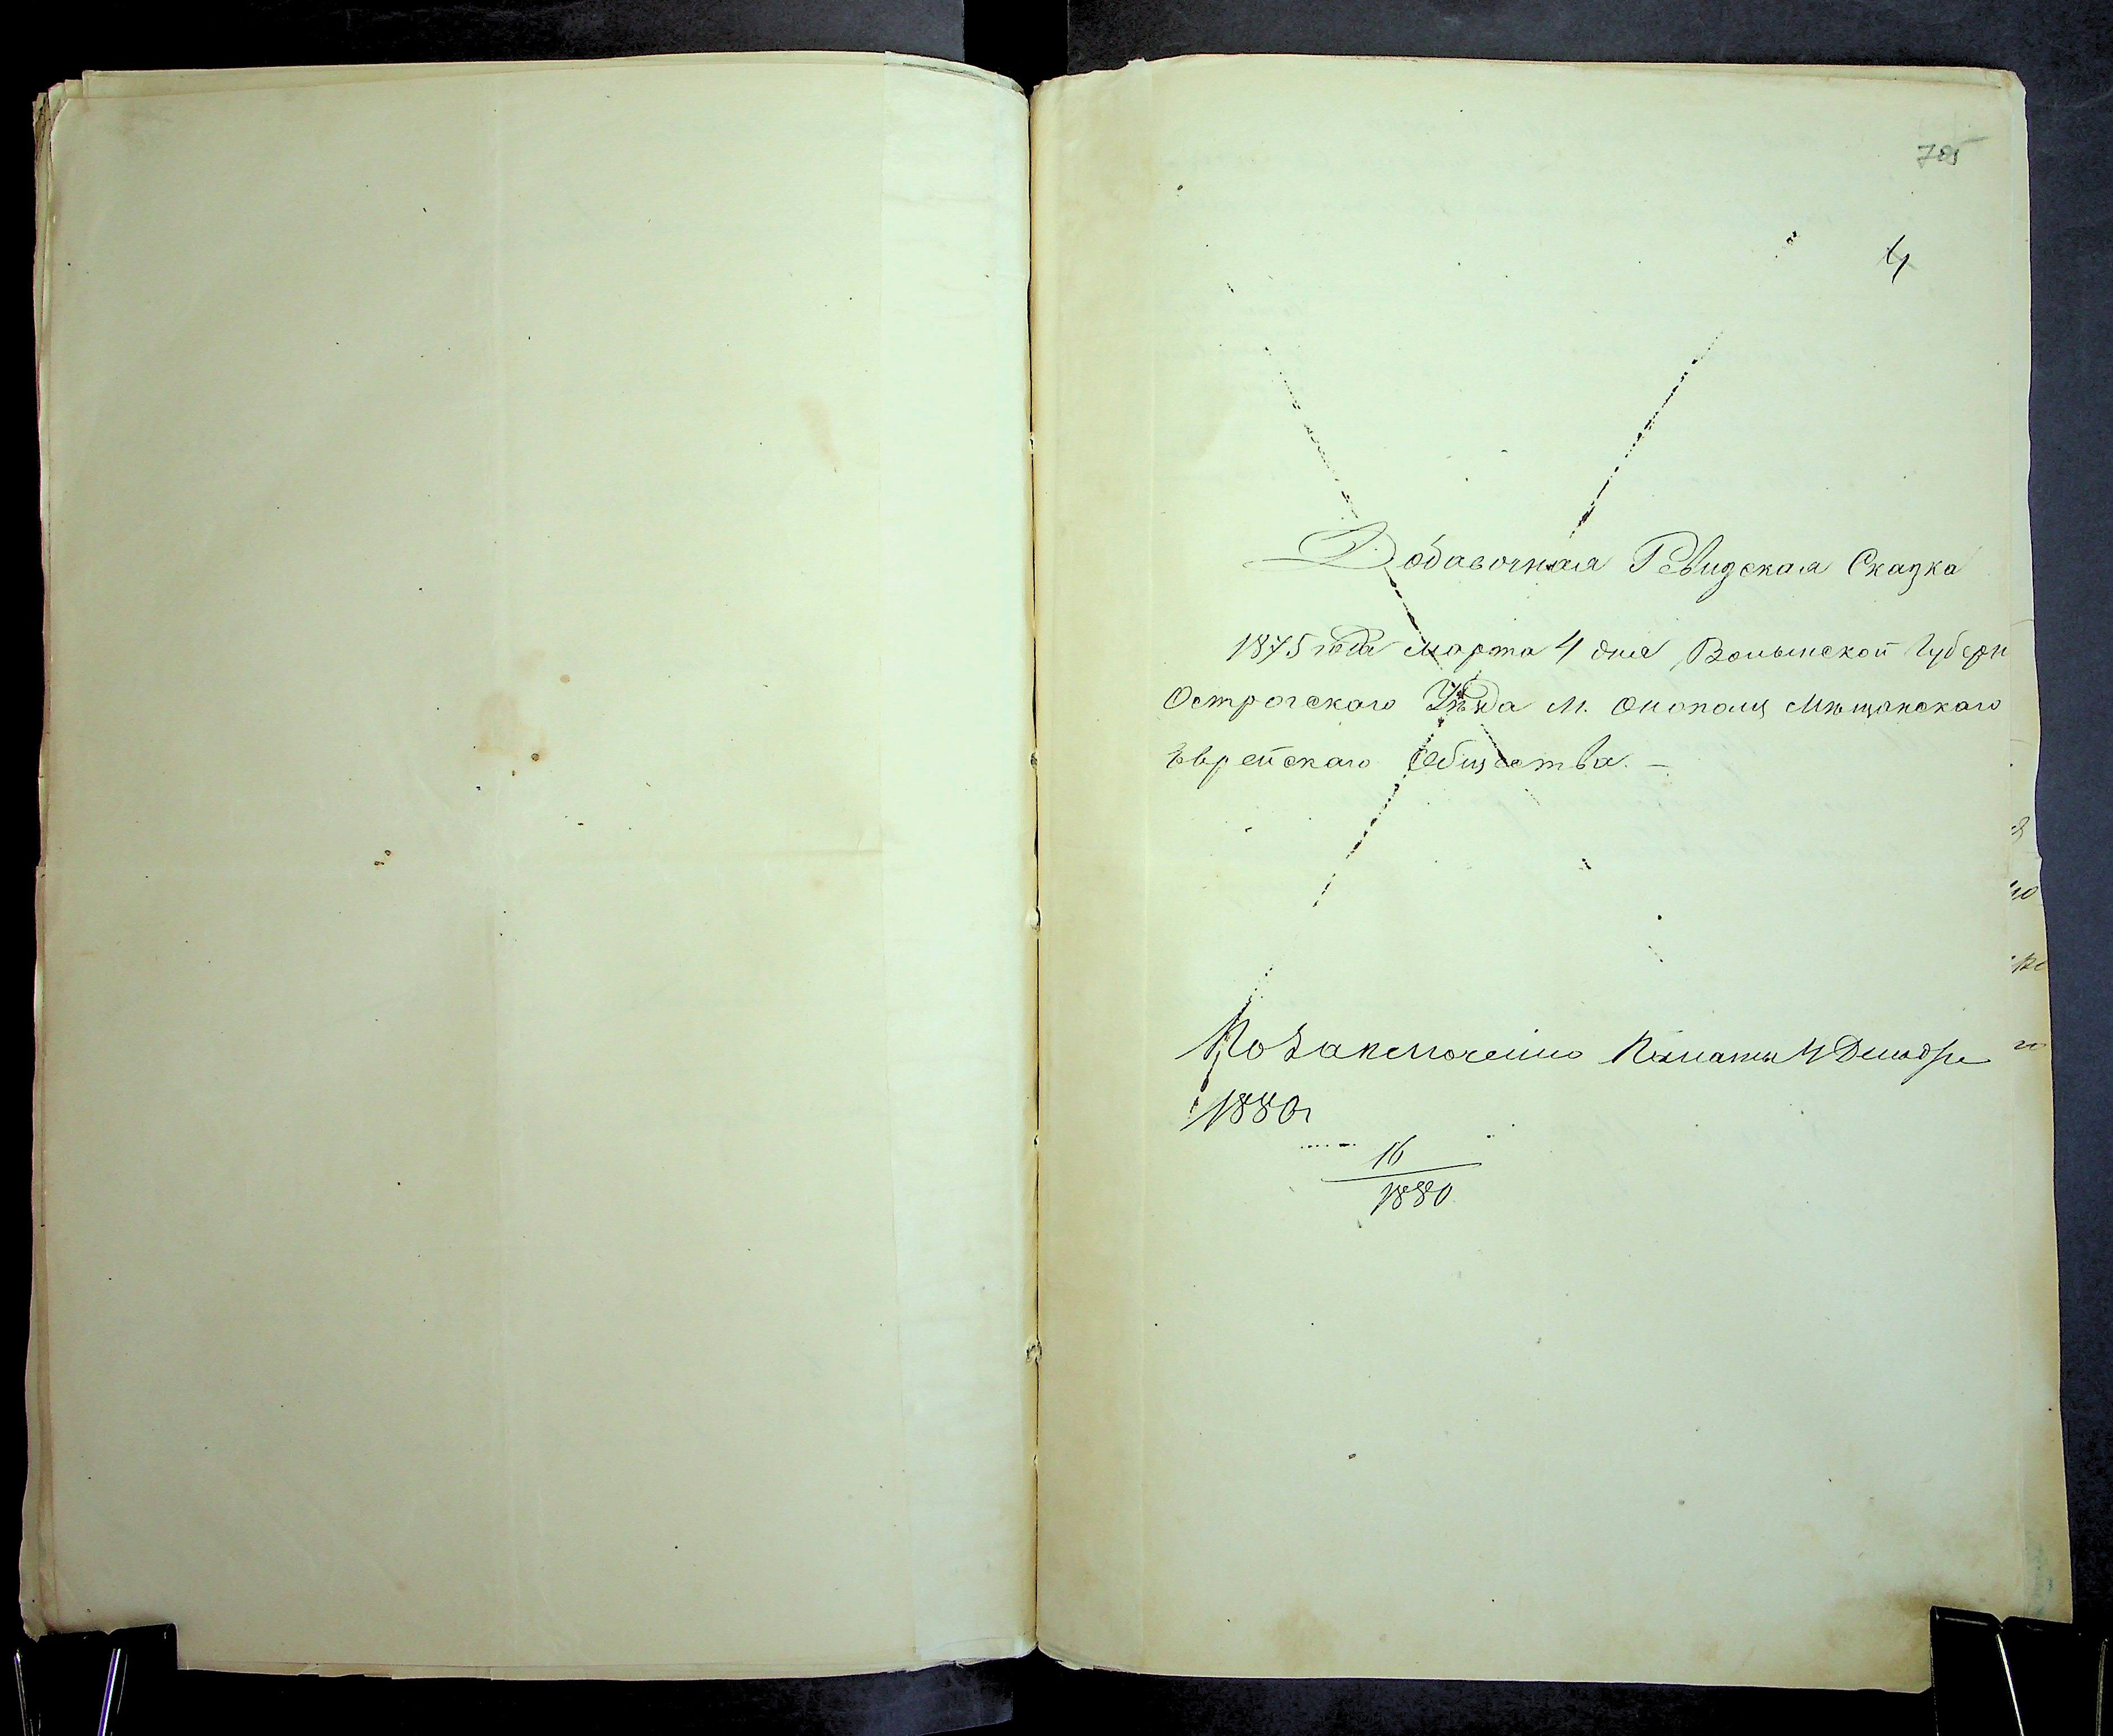 705
4
Добавочная Ревизская Сказка
1875 года марта 4 дня Волынской Губерн
Острогскаго Уѣзда М. Онополц Мѣщанскаго
Еврейскаго Общества. —
По Заключенію Палаты 4 Декабря
1880 г
16
1880